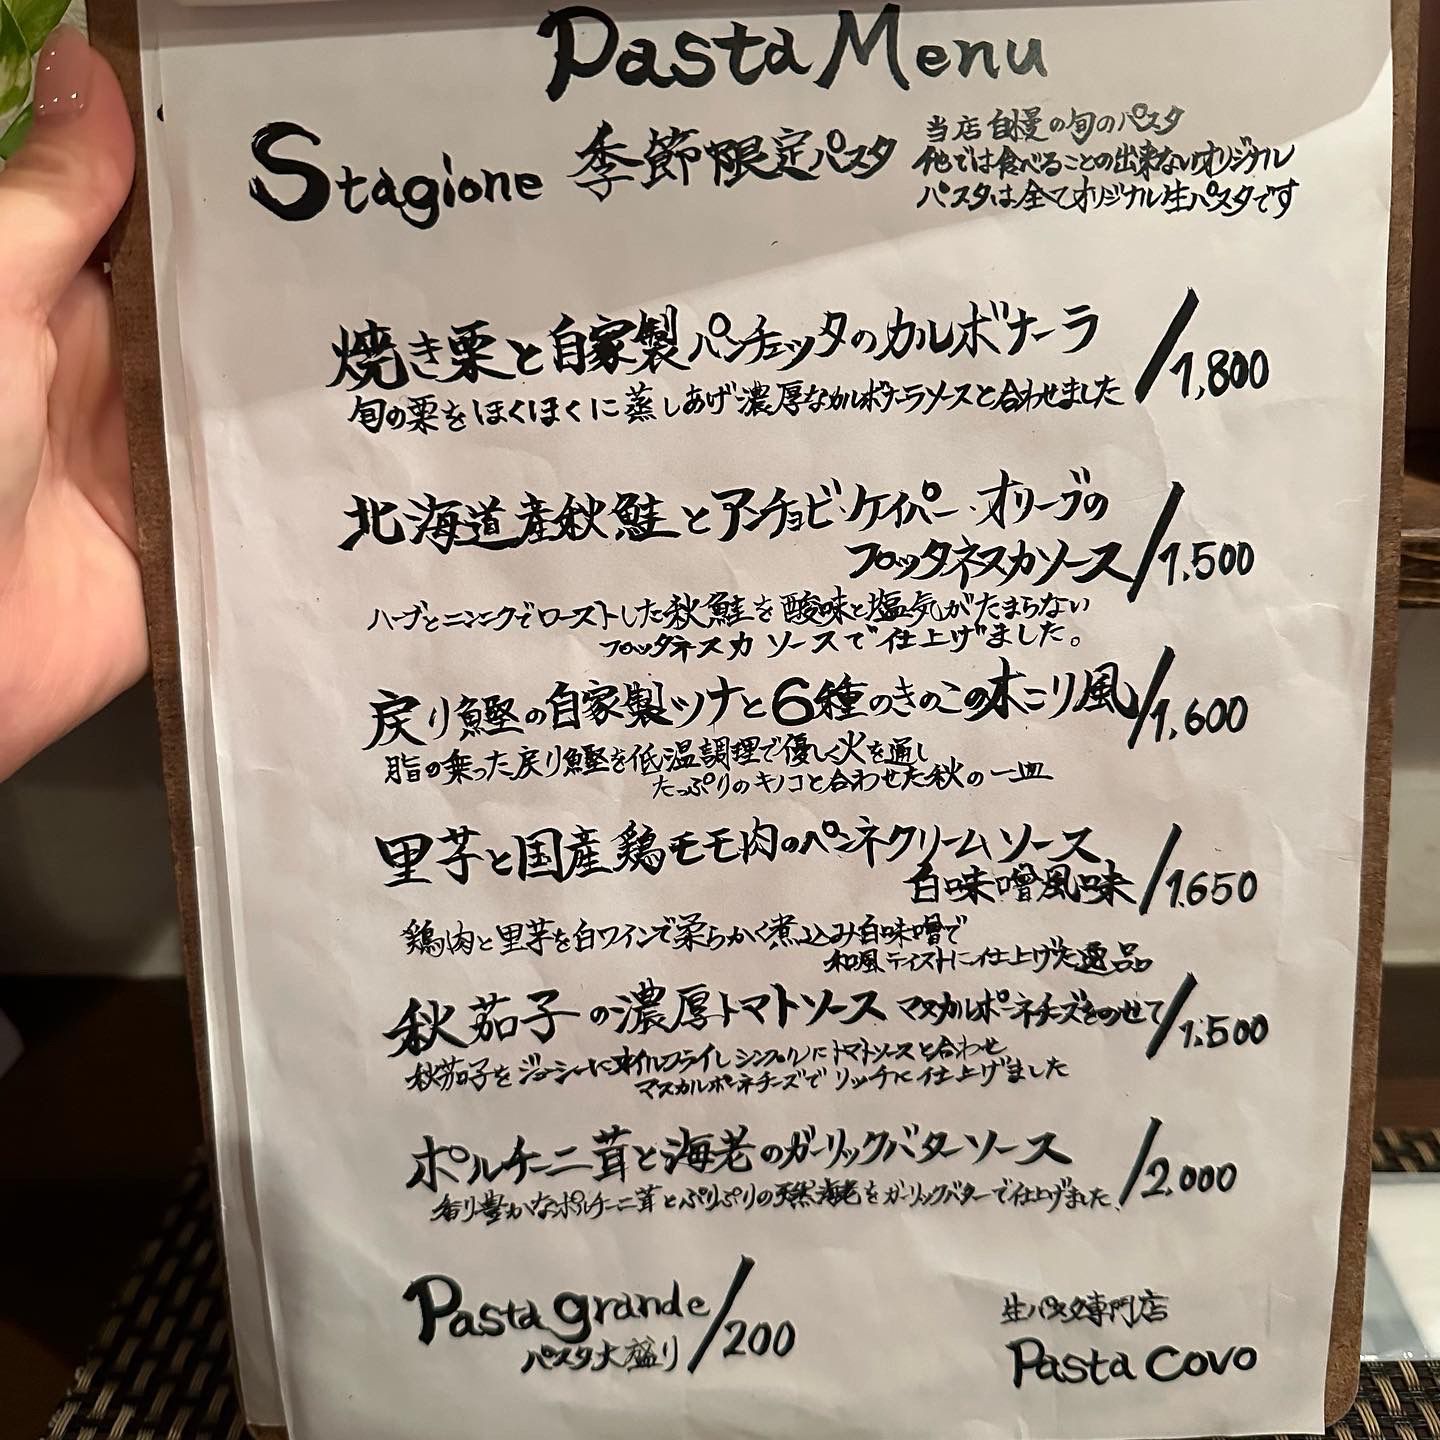 Pasta Menu
Stagione 季節限定パスタ
当店自慢の旬のパスタ
他では食べることの出来ないオリジナル
パスタは全てオリジナル生パスタです
焼き栗と自家製パンチェッタのカルボナーラ /1,800
旬の栗をほくほくに蒸しあげ濃厚なカルボナーラソースと合わせました
北海道産秋鮭とアンチョビ・ケイパー・オリーブの
プッタネスカソース /1,500
ハーブとニンニクでローストした秋鮭を酸味と塩気がたまらない
プッタネスカソースで仕上げました。
戻り鰹の自家製ツナと6種のきのこの木こり風 /1,600
脂の乗った戻り鰹を低温調理で優しく火を通し
たっぷりのキノコと合わせた秋の一皿
里芋と国産鶏モモ肉のペンネクリームソース
白味噌風味 /1,650
鶏肉と里芋を白ワインで柔らかく煮込み白味噌で
和風テイストに仕上げた逸品
秋茄子の濃厚トマトソース マスカルポーネチーズをのせて /1,500
秋茄子をジューシーにオイルフライしシンプルにトマトソースと合わせ
マスカルポーネチーズでリッチに仕上げました
ポルチーニ茸と海老のガーリックバターソース /2,000
香り豊かなポルチーニ茸とぷりぷりの天然海老をガーリックバターで仕上げました
Pasta grande /200
パスタ大盛り
生パスタ専門店
Pasta covo